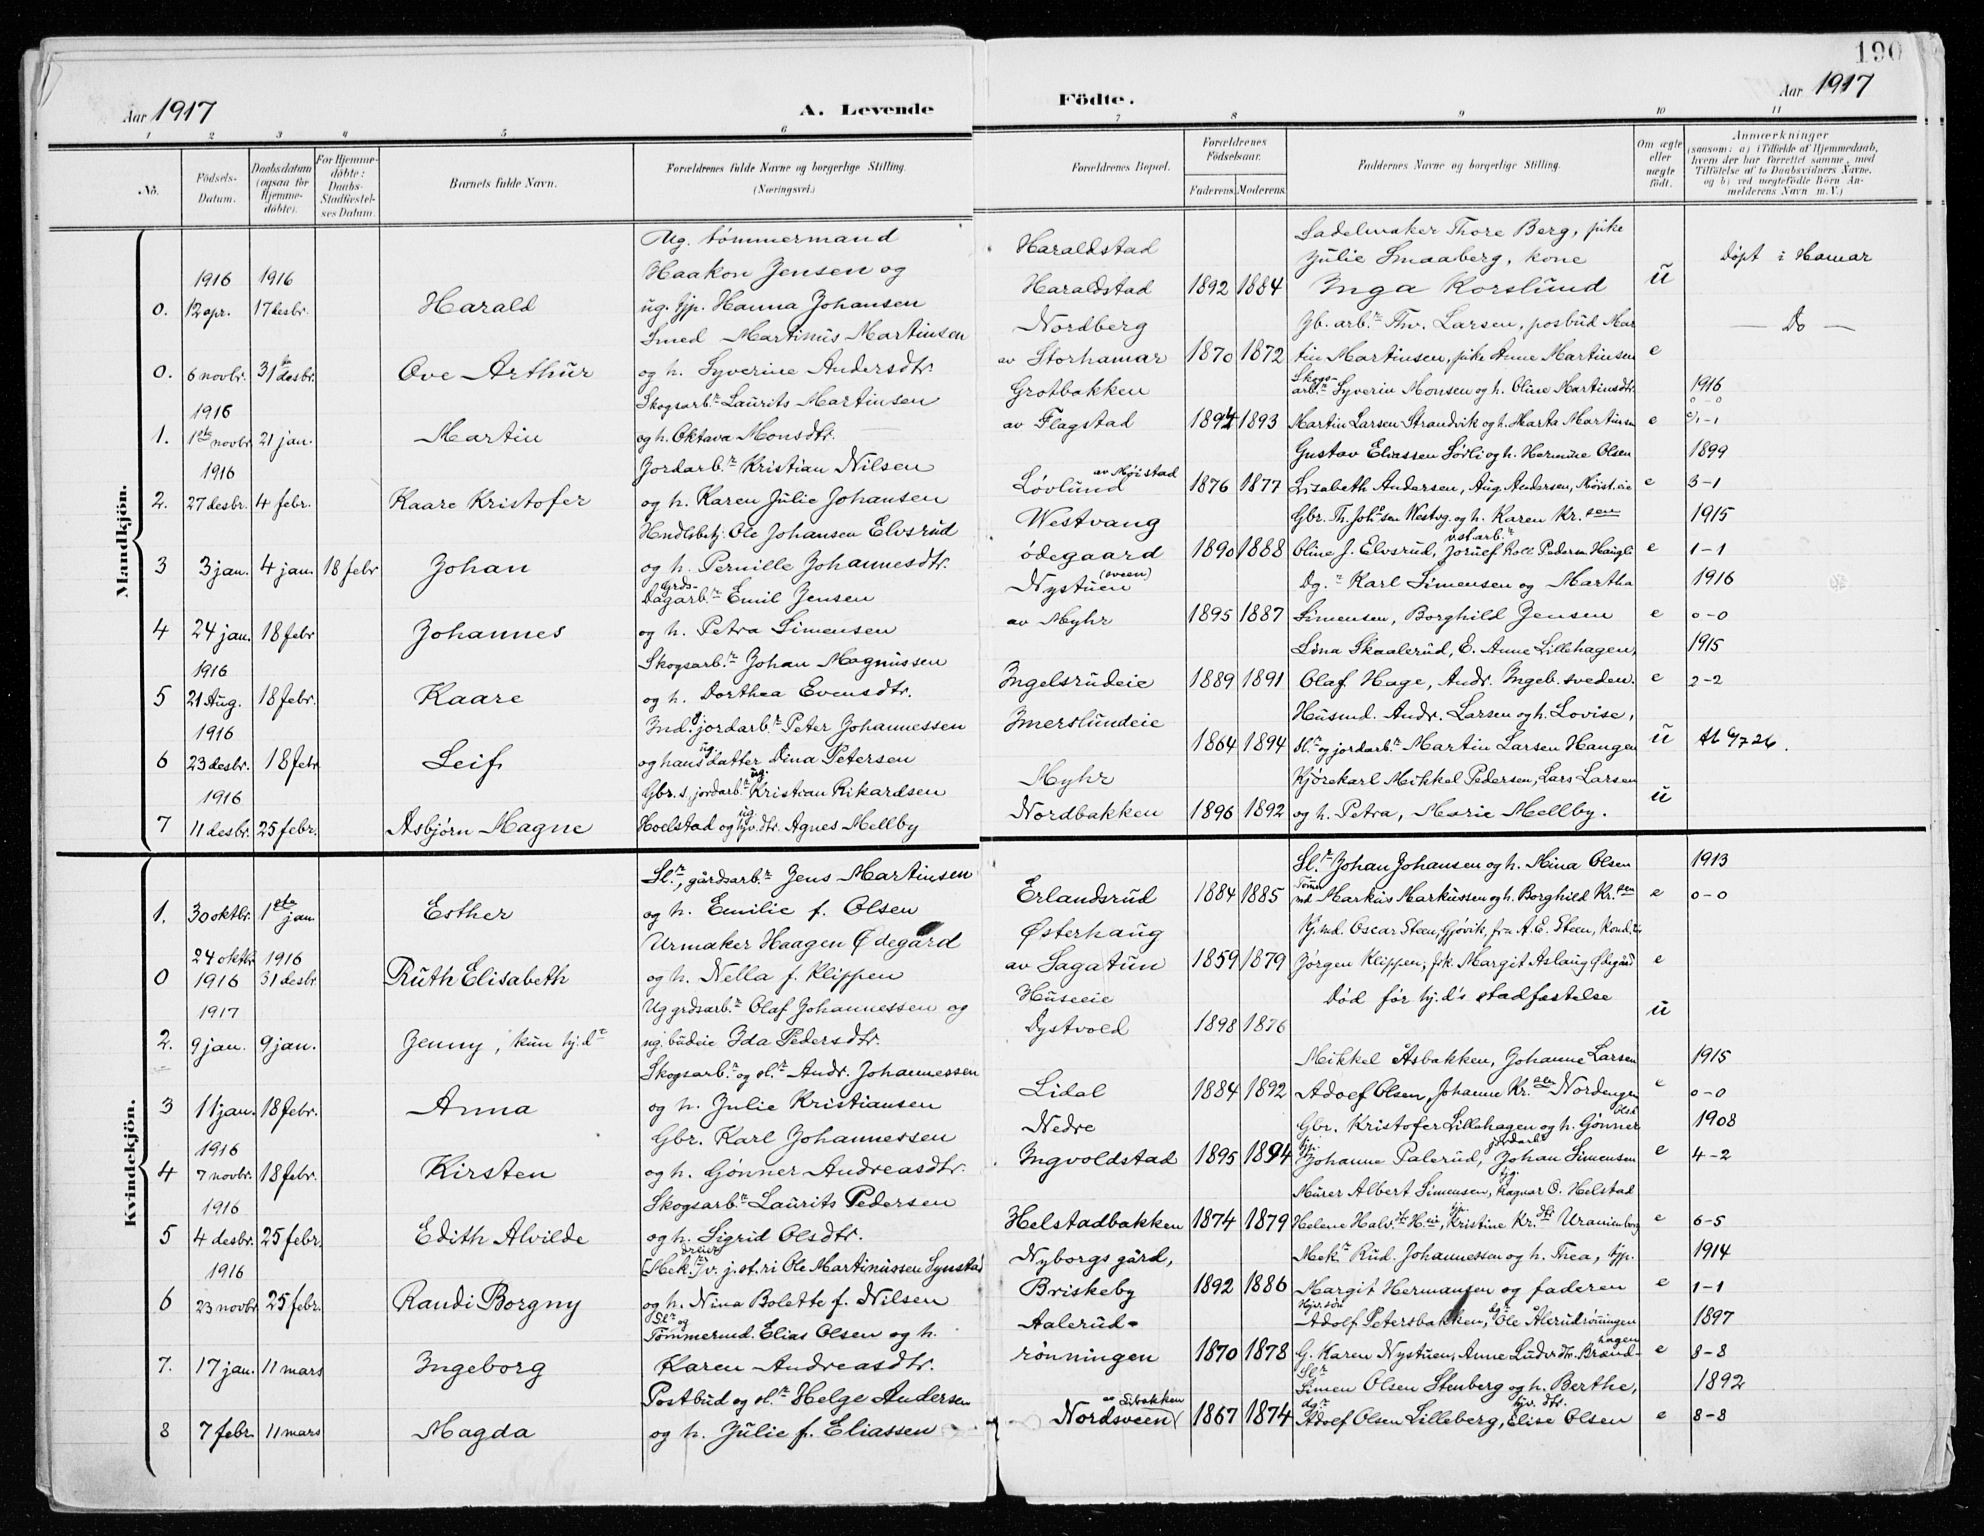 190
Aar 1917
A. Levende
Födte.
Aar 1917
1 2 3 4 5 6 7 8 9 10 11
No.
Födsels-Datum.
Daabsdatum (ogsaa for Hjemme-döbte).
For Hjemme-döbte: Daabs-Stadfæstel-ses Datum.
Barnets fulde Navn.
Forældrenes fulde Navne og borgerlige Stilling. (Næringsvei.)
Forældrenes Bopæl.
Forældrenes Födselsaar.
Faderens. Moderens.
Faddernes Navne og borgerlige Stilling.
Om ægte eller uægte födt.
Anmærkninger
(saasom: a) i Tilfælde af Hjemmedaab, hvem der har forrettet samme, med Tilföielse af to Daabsvidners Navne, og b) ved uægtefödte Börn An-melderens Navn m.V.)
Mandkjön.
Ug. tömmermand
Haraldstad
Sadelmaker Thore Berg, pike
1916 1916
Haakon Jensen og
Julie Smaaberg, kone
Döpt i Hamar
0. 12 apr. 17 desbr. Harald
ug. tjp. Hanna Johansen
Haraldstad 1892 1884 Inga Korslund ü
Smed Martinus Martinsen
Nordberg
Gb. arb.r Thv. Larsen, posbud Mar
— Do —
0. 6 novbr. 31te desbr. Ove Arthur
og h. Syverine Andersdtr.
av Storhamar 1870 1872 tin Martinsen, pike Anne Martinsen e
1916
Skogsarb.r Laurits Martinsen
Grotbakken
Skogs-arb.r Syverin Monsen og h. Oline Martinsdtr.
1916
0-0
1. 1ste novbr. 21 jan. Martin
og h. Oktava Monsdtr.
av Flagstad 1894 1893 Martin Larsen Strandvik og h. Marta Martinsen e
1916
Jordarb.r Kristian Nilsen
Gustav Eliassen Sørli og h. Hermine Olsen
1899
2. 27 desbr. 4 febr. Kaare Kristofer
og h. Karen Julie Johansen
Løvlund av Møistad 1876 1877 Lisabeth Andersen, Aug. Andersen, Møist.eie e 3-1
Hndlsbetj. Ole Johansen Elvsrud
Westvang
Gbr. Th. Johs.sen Westvg. og h. Karen Kr.sen
1915
3 3 jan. 4 jan. 18 febr. Johan
og h. Pernille Johannesdtr.
ødegaard 1890 1888 Oline J. Elvsrud, e 1-1
Grds-Dagarb.r Emil Jensen
Nystuen (sveen)
Dg.r Karl Simensen og Martha
1916
4 24 jan. 18 febr. Johannes
og h. Petra Simensen
av Myhr 1895 1887 Simensen, Borghild Jensen e 0-0
1916
Skogsarb.r Johan Magnussen
Lina Skaalerud, E. Anne Lillehagen,
1915
5 21 Aug. 18 febr. Kaare
og h. Dorthea Evensdtr.
Ingelsrudeie 1889 1891 Olaf Hage, Andr. Ingeb. sveden. e 2-2
1916
Ind. jordarb.r Peter Johannessen
Imerslundeie
Husmd. Andr. Larsen og h. Lovise,
6 23 desbr. 18 febr. Leif
og hans ug. datter Dina Petersen
1864 1894 Sl.r og jordarb.r Martin Larsen Haugen ü
1916
Gbr. s, jordarb.r ug. Kristian Rikardsen
Myhr
Kjørekarl Mikkel Pedersen, Lars Larsen
7 11 desbr. 25 febr. Asbjørn Magne
Hoelstad og ug. hjv. dtr. Agnes Mellby
Nordbakken 1896 1892 og h. Petra, Marie Mellby. ü
Kvindekjön.
Sl.r, gårdsarb.r Jens Martinsen
Sl.r Johan Johansen og h. Mina Olsen
1913
1. 30 oktbr. 1ste jan. Esther
og h. Emilie f. Olsen
Erlandsrud 1884 1885 Tömmd Markus Markussen og h. Borghild Kr.sen e 0-0
Urmaker Haagen Ødegård
Østerhaug
Kj.md. Oscar Steen, Gjøvik, fru A. E. Steen,
24 oktbr. 1916
0 1916 31 desbr. Ruth Elisabeth
og h. Nella f. Klippen
av Sagatun 1859 1879 Jörgen Klippen, frk. Margit Aslaug Ødegård e
1917
Ug grdsarb.r Olaf Johannessen og
Huseeie
Död för hj.d's stadfæstelse
2. 9 jan. 9 jan. Jenny, kun hj.d.r
ug. budeie Ida Pedersdtr.
Dystvold 1898 1876 ü
Skogsarb.r og sl.r Andr. Johannessen
Mikkel Åsbakken, Johanne Larsen
1915
3 11 jan. 18 febr. Anna
og h. Julie Kristiansen
Lidal 1884 1892 Adolf Olsen, Johanne Kr.sen Nordengen e 0-0
1916
Gbr. Karl Johannessen
Nedre
Gbr. Kristofer Lillehagen og h. Gönner
1908
4 7 novbr. 18 febr. Kirsten
og h. Gönner Andreasdtr.
Ingvoldstad 1895 1894 tjp. Johanne Palerud, jordarb.r Johan Simensen e 4-2
1916
Skogsarb.r Laurits Pedersen
Murer Albert Simensen, tjg. Ragnar O. Helstad
5 4 desbr. 25 febr. Edith Alvilde
og h. Sigrid Olsdtr.
Helstadbakken 1874 1879 tjp. Kristine Kr.dtr Uranienborg e 6-5
1916
[Mek.r] dreier v. j.st.ri Ole Martinussen Synstad
Nyborgs gård,
Mek.r Rud. Johannessen og h. Thea, tjp.
1914
6 23 novbr 25 febr. Randi Borgny
og h. Nina Bolette f. Nilsen
Briskeby 1892 1886 Margit Hermansen og faderen e 1-1
Sl.r og Tömmermd. Elias Olsen og h.
Aalerud-
Hjv. sön Adolf Petersbakken, dg.r Ole Ålerudrönningen
1897
7. 17 jan. 11 mars Ingeborg
Karen Andreasdtr.
rönningen 1870 1878 G. Karen Nystuen, Anne Ludv.dtr. Brand-hagen e 8-8
Postbud og sl.r Helge Andersen
av Sibakken
Sl.r Simen Olsen Stenberg og h. Berthe,
1892
8 7 febr. 11 mars Magda
og h. Julie f. Eliassen
Nordsveen 1867 1874 dg.r Adolf Olsen Lilleberg, hjv. dtr. Elise Olsen e 8-8